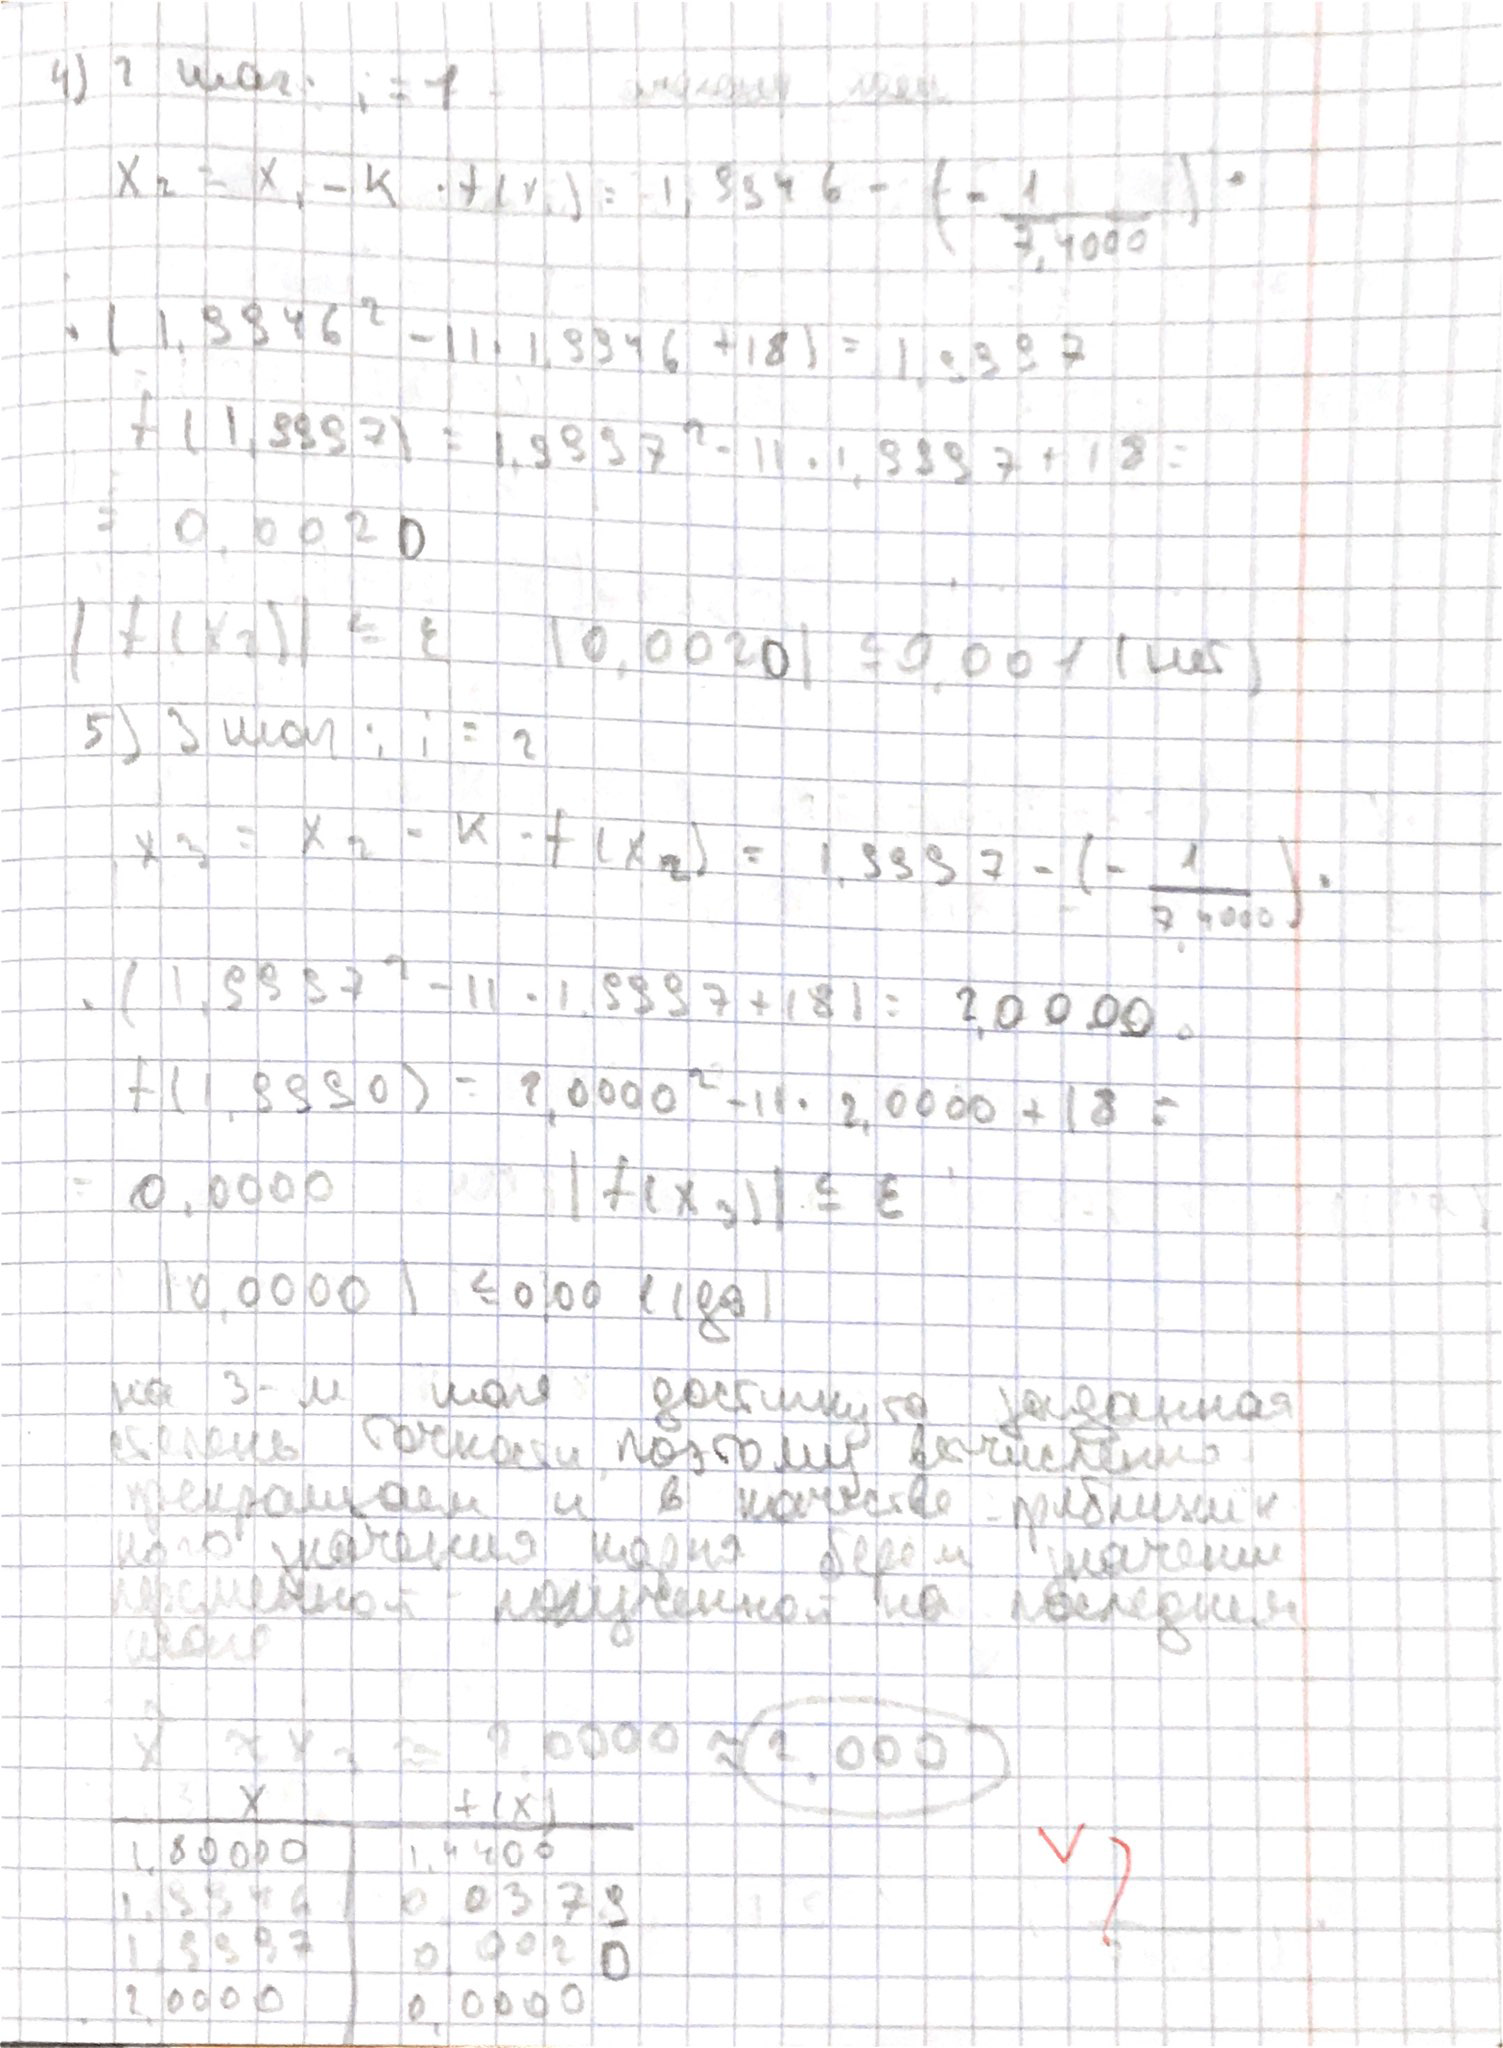 4) 2 шаг: i = 1
x₂ = x₁ - K · f(x₁) = 1,9946 - (- 1/7,4000) ·
· (1,9946² - 11 · 1,9946 + 18) = 1,9997
f(1,9997) = 1,9997² - 11 · 1,9997 + 18 =
= 0,0020
|f(x₂)| ≤ ε |0,0020| ≤ 0,001 (нет)
5) 3 шаг: i = 2
x₃ = x₂ - K · f(x₂) = 1,9997 - (- 1/7,4000) ·
· (1,9997² - 11 · 1,9997 + 18) = 2,0000
f(1,9990) = 2,0000² - 11 · 2,0000 + 18 =
= 0,0000 |f(x₃)| ≤ ε
|0,0000| ≤ 0,001 (да)
на 3-м шаге достигнута заданная
степень точности, поэтому вычисления
прекращаем и в качестве приближен
ного значения корня берем значение
переменной полученной на последнем
шаге
x ≈ x₃ = 2,0000 ≈ 2,000
x f(x)
1,80000 1,4400
1,9946 0,0379
1,9997 0,0020
2,0000 0,0000